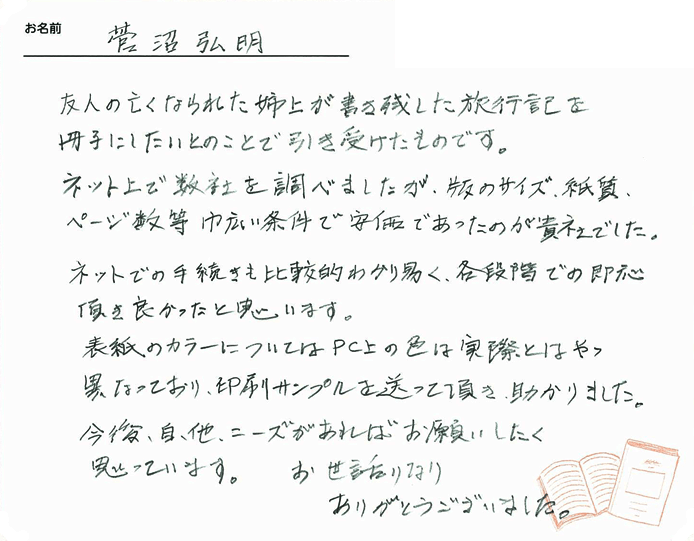 お名前 菅沼弘明
友人の亡くなられた姉上が書き残した旅行記を
冊子にしたいとのことで引き受けたものです。
ネット上で数社を調べましたが、版のサイズ、紙質、
ページ数等巾広い条件で安価であったのが貴社でした。
ネットでの手続きも比較的わかり易く、各段階での即応
頂き良かったと思います。
表紙のカラーについてはPC上の色は実際とはやっ
異なっており、印刷サンプルを送って頂き、助かりました。
今後、自、他、ニーズがあればお願いしたく
思っています。 お世話になり
ありがとうございました。